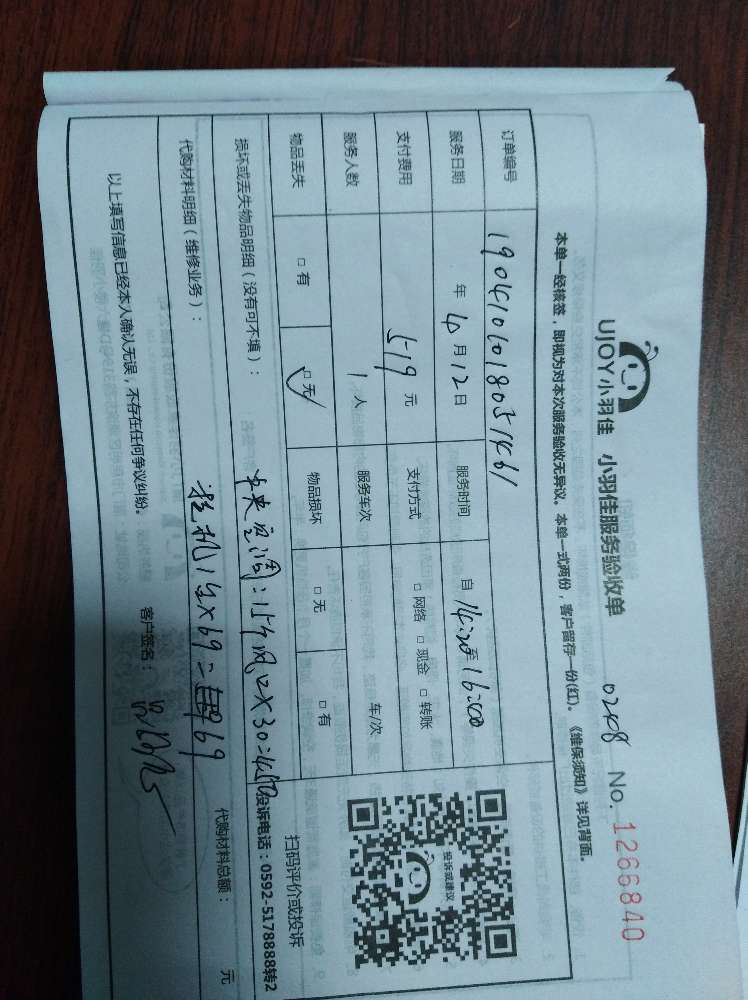 UJOY小羽佳 小羽佳服务验收单 0248 No. 1266840
本单一经核签，即视为对本次服务验收无异议。本单一式两份，客户留存一份(红)。《维保须知》详见背面。
订单编号 19041010180351461
服务日期 年 4月12日 服务时间 自 14:20至16:00
支付费用 519 元 支付方式 □ 网络 □ 现金 □ 转账
服务人数 1 人 服务车次 车/次
物品丢失 □ 有 □ 无 物品损坏 □ 无 □ 有
投诉或建议
扫码评价或投诉
投诉电话：0592-5178888转2
损坏或丢失物品明细（没有可不填）： 中央空调：15个风口X30=450
代购材料明细（维修业务）： 挂机1台X69=69 代购材料总额： 元
以上填写信息已经本人确认无误，不存在任何争议纠纷。 客户签名：